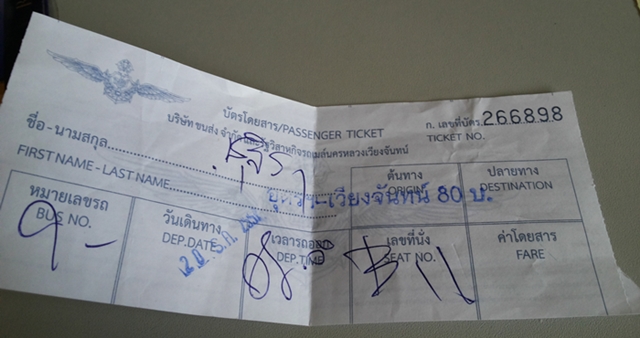 บัตรโดยสาร/PASSENGER TICKET
บริษัท ขนส่ง จำกัดและรัฐวิสาหกิจรถเมล์นครหลวงเวียงจันทน์
ก. เลขที่บัตร 266898
TICKET NO.
ชื่อ-นามสกุล
FIRST NAME - LAST NAME
อุดรฯ-เวียงจันทน์ 80 บ.
ต้นทาง
ORIGIN
ปลายทาง
DESTINATION
หมายเลขรถ
BUS NO.
วันเดินทาง
DEP.DATE
เวลารถออก
DEP.TIME
เลขที่นั่ง
SEAT NO.
ค่าโดยสาร
FARE
9 -
11